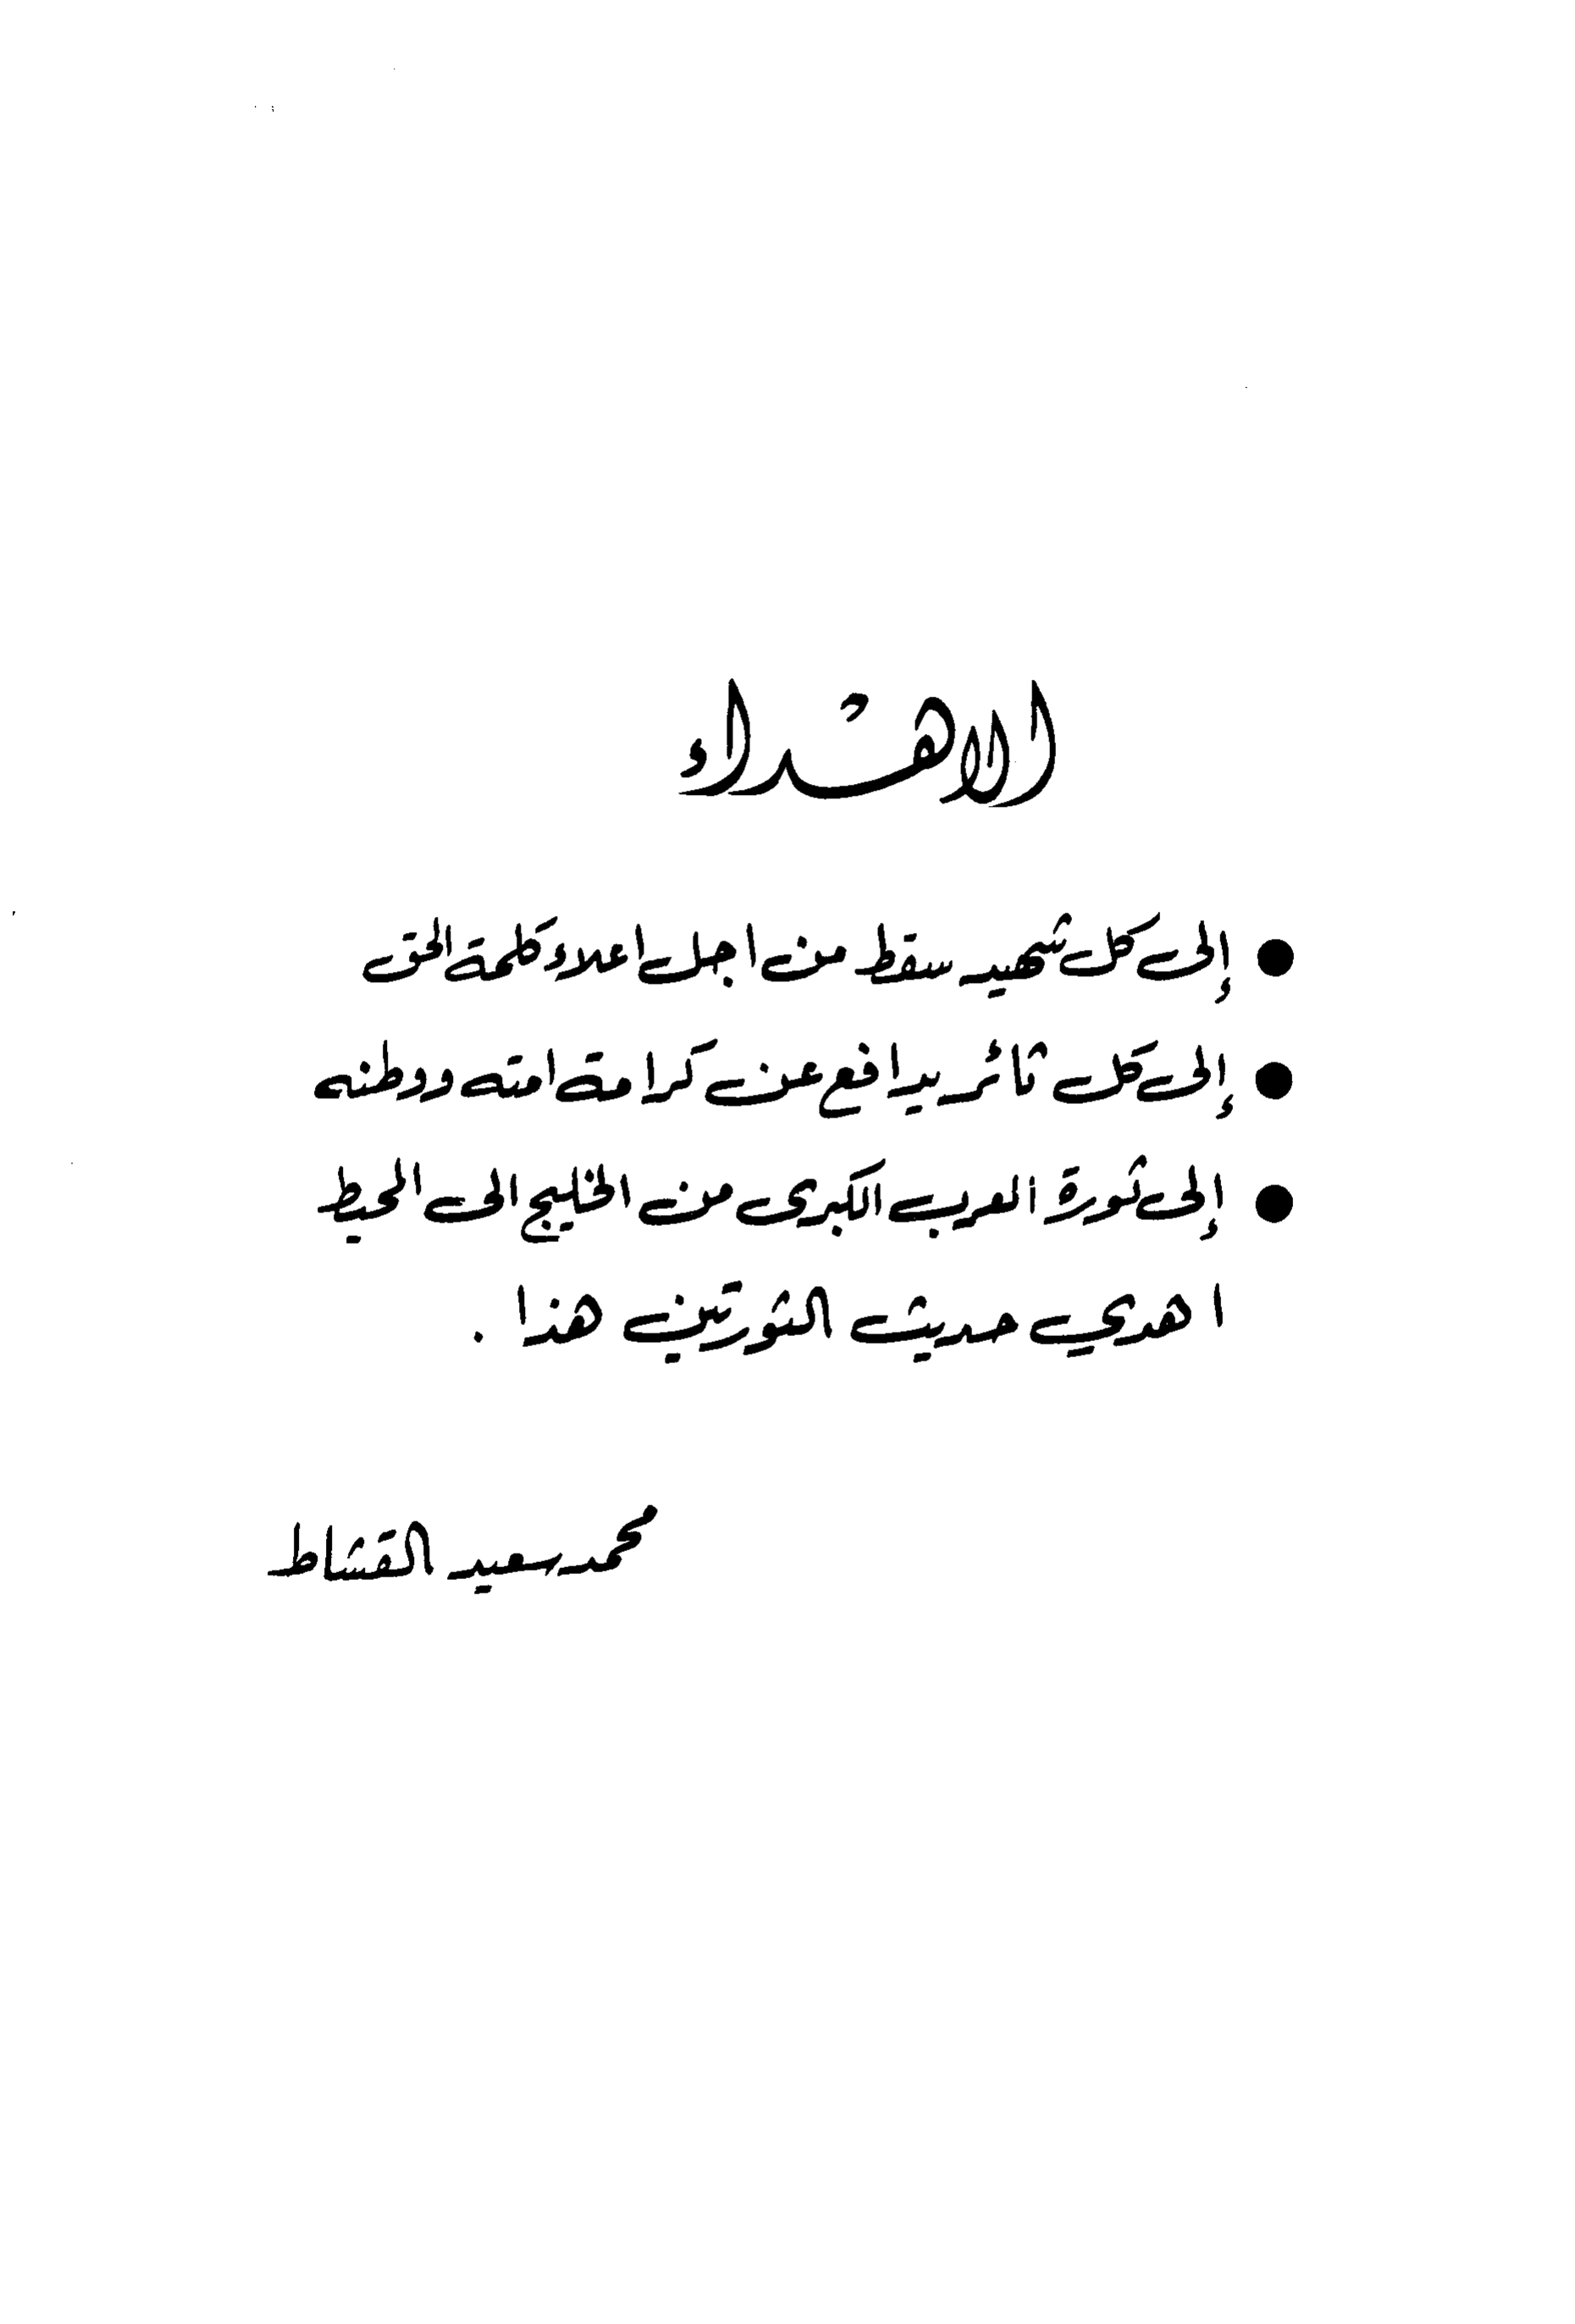 الاهداء
● إلى كل شهيد سقط من اجل اعلاء كلمة الحق
● إلى كل ثائر يدافع عن كرامة امته ووطنه
● إلى ثورة العرب الكبرى من الخليج الى المحيط
اهدي حديث الثورتين هذا .
محمد سعيد القشاط